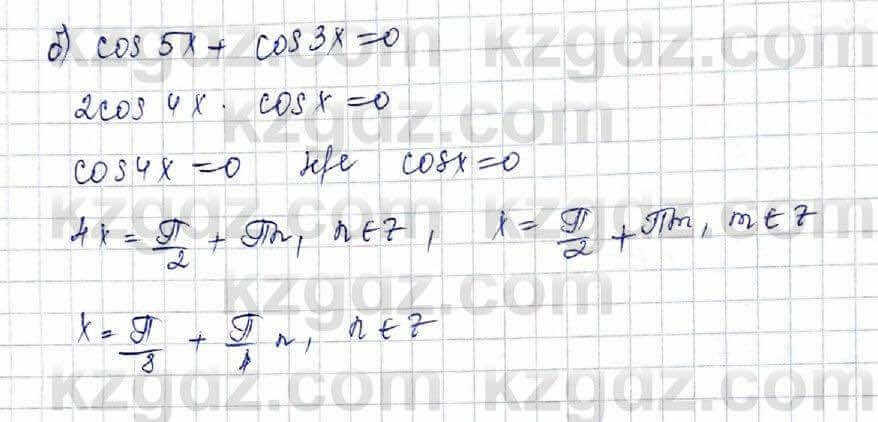 б) cos 5x + cos 3x = 0
2cos 4x · cos x = 0
cos 4x = 0 н/е cos x = 0
4x = П/2 + Пn, n ∈ Z, x = П/2 + Пm, m ∈ Z
x = П/8 + П/4 n, n ∈ Z
kzgdz.com
kzgdz.com
kzgdz.com
kzgdz.com
kzgdz.com
kzgdz.com
kzgdz.com
kzgdz.com